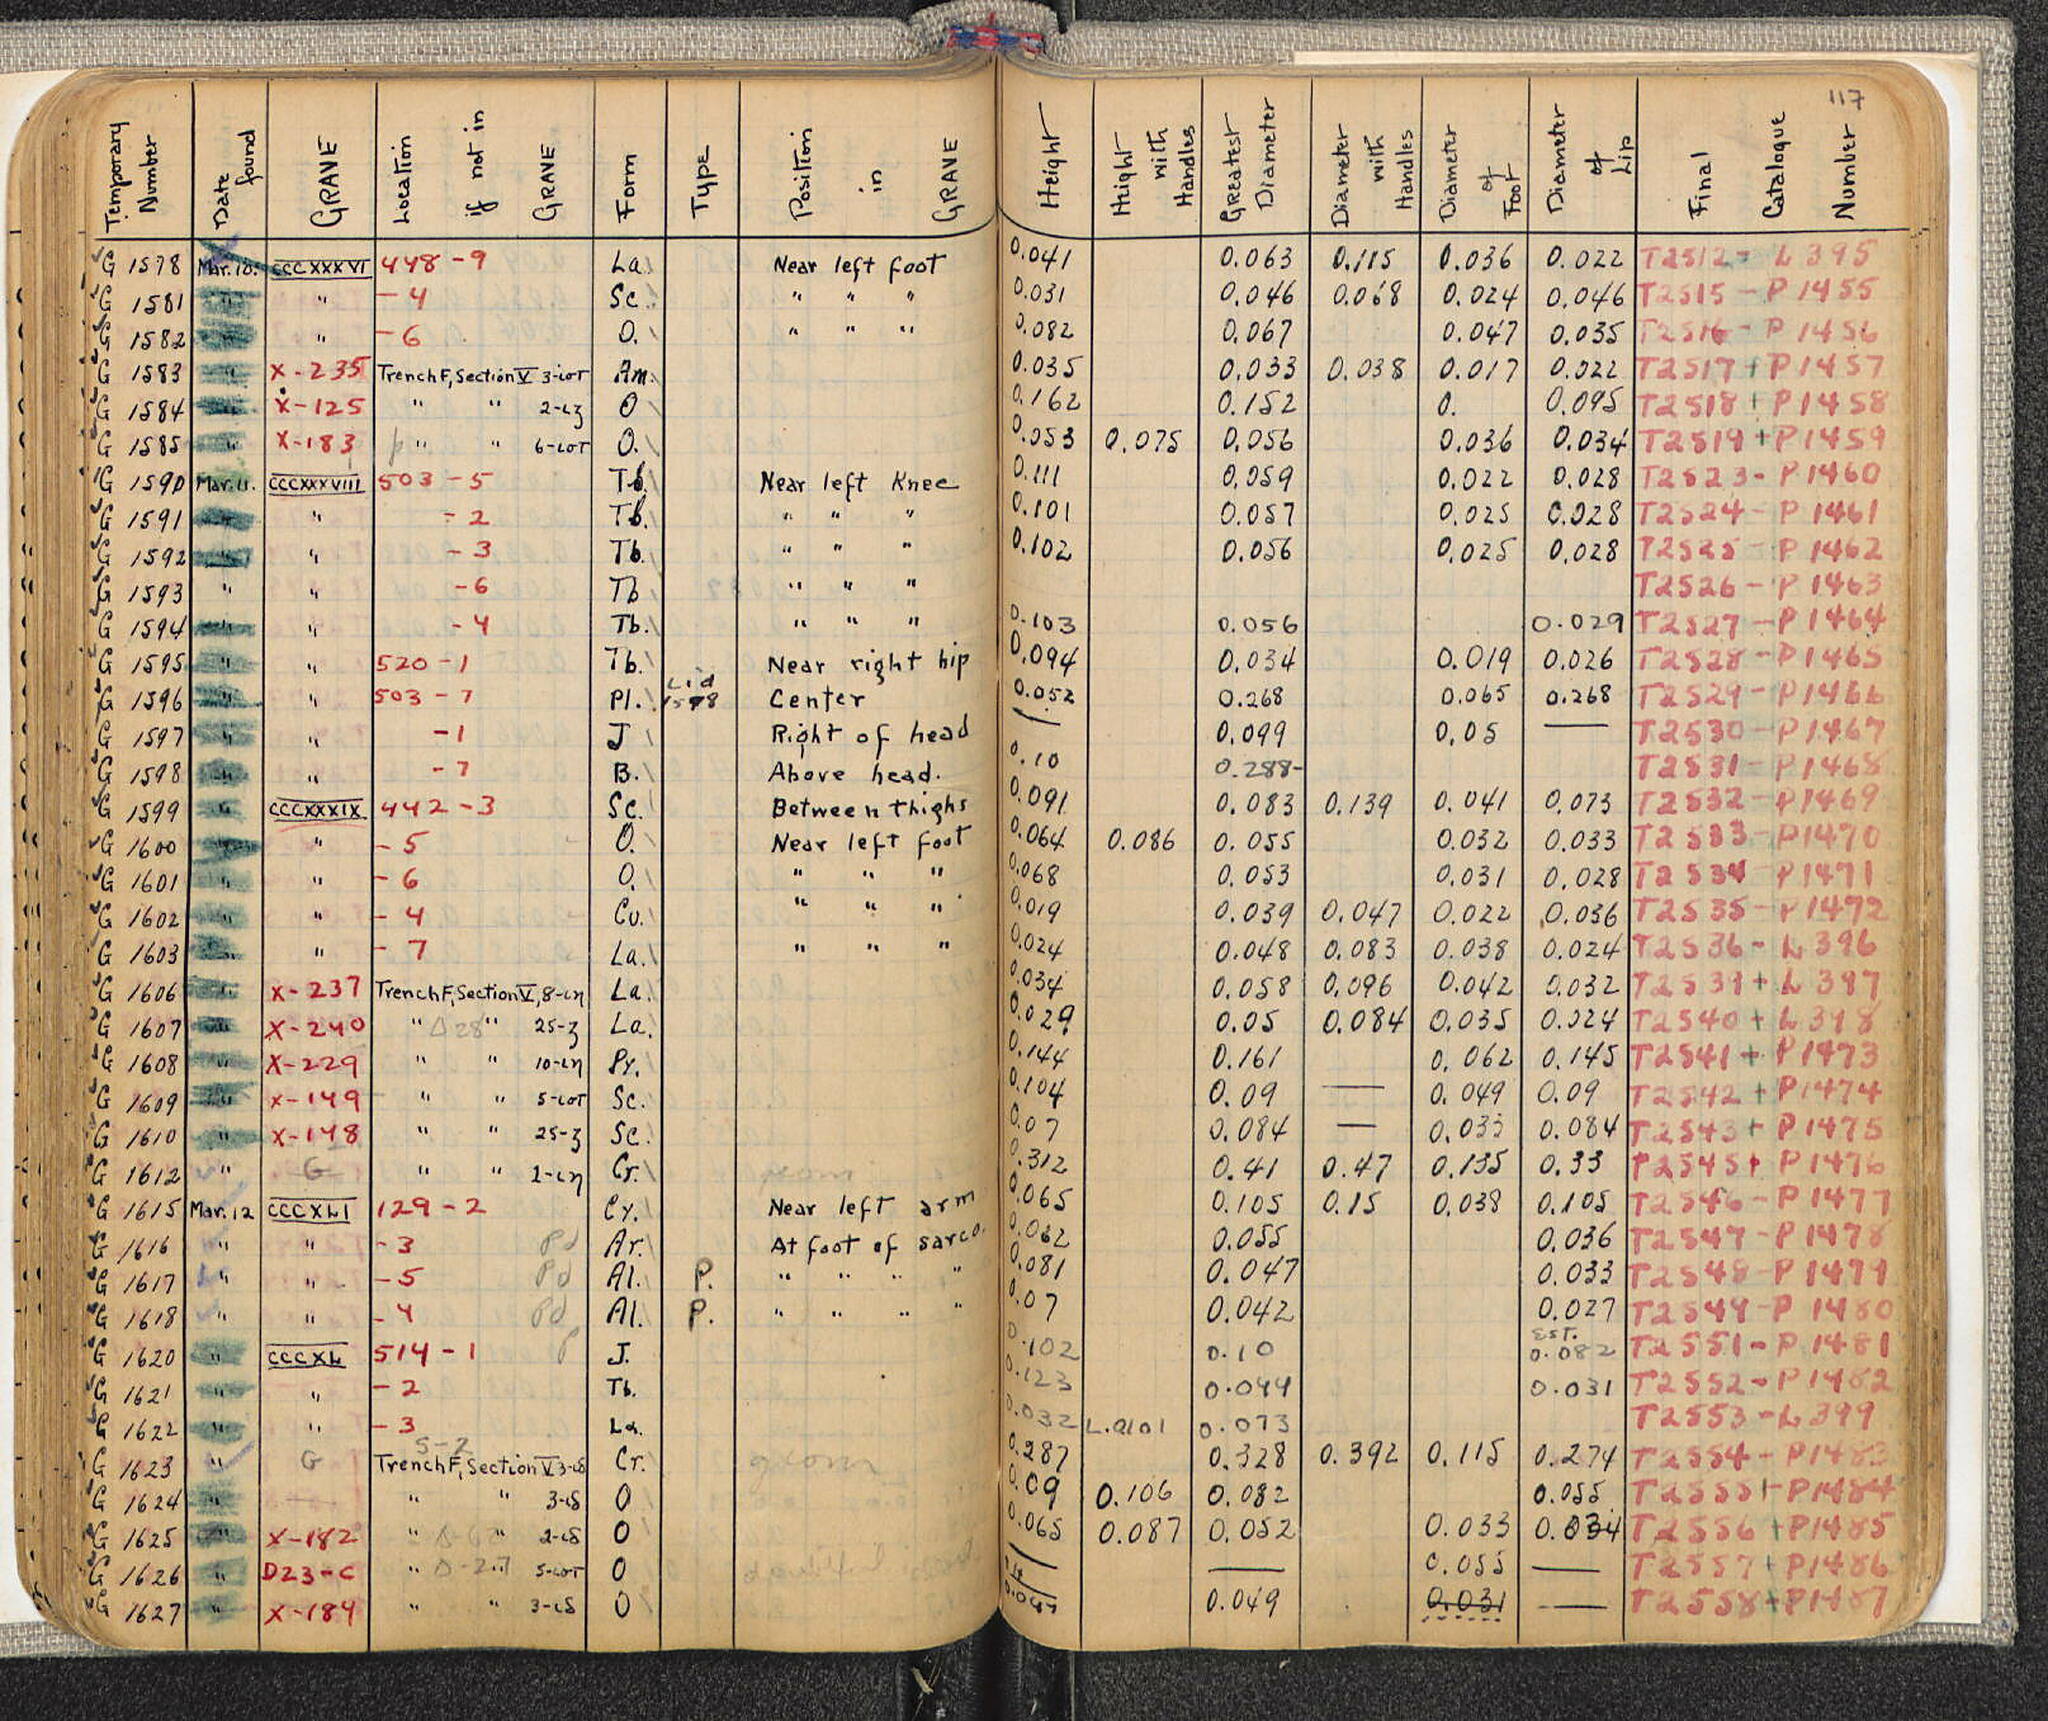 117
Temporary Number | Date found | GRAVE | Location if not in GRAVE | Form | Type | Position in GRAVE | Height | Height with Handles | Greatest Diameter | Diameter with Handles | Diameter of Foot | Diameter of Lip | Final Catalogue Number
G 1578 Mar. 10. CCCXXXVI 448-9 La. Near left foot 0.041 0.063 0.115 0.036 0.022 T2512- L395
G 1581 " " -4 Sc. " " " 0.031 0.046 0.068 0.024 0.046 T2515-P1455
G 1582 " " -6 O. " " " 0.082 0.067 0.047 0.035 T2516-P1456
G 1583 " X-235 Trench F, Section V 3-LOT Am. 0.035 0.033 0.038 0.017 0.022 T2517+P1457
G 1584 " X-125 " " 2-LZ O 0.162 0.152 0. 0.095 T2518+P1458
G 1585 " X-183 " " 6-LOT O. 0.053 0.075 0.056 0.036 0.034 T2519+P1459
G 1590 Mar. 11. CCCXXXVIII 503-5 Tb. Near left Knee 0.111 0.059 0.022 0.028 T2523-P1460
G 1591 " " -2 Tb. " " " 0.101 0.057 0.025 0.028 T2524-P1461
G 1592 " " -3 Tb. " " " 0.102 0.056 0.025 0.028 T2525-P1462
G 1593 " " -6 Tb " " " T2526-P1463
G 1594 " " -4 Tb. " " " 0.103 0.056 0.029 T2527-P1464
G 1595 " " 520-1 Tb. Near right hip 0.094 0.034 0.019 0.026 T2528-P1465
G 1596 " " 503-7 Pl. Lid 1598 Center 0.052 0.268 0.065 0.268 T2529-P1466
G 1597 " " -1 J Right of head — 0.099 0.05 — T2530-P1467
G 1598 " " -7 B. Above head. 0.10 0.288- T2531-P1468
G 1599 " CCCXXXIX 442-3 Sc. Between thighs 0.091 0.083 0.139 0.041 0.073 T2532-P1469
G 1600 " " -5 O. Near left foot 0.064 0.086 0.055 0.032 0.033 T2533-P1470
G 1601 " " -6 O. " " " 0.068 0.053 0.031 0.028 T2534-P1471
G 1602 " " -4 Co. " " " 0.019 0.039 0.047 0.022 0.036 T2535-P1472
G 1603 " " -7 La. " " " 0.024 0.048 0.083 0.038 0.024 T2536-L396
G 1606 " X-237 Trench F, Section V, 8-ιη La. 0.034 0.058 0.096 0.042 0.032 T2539+L397
G 1607 " X-240 " Δ28 " 25-ζ La. 0.029 0.05 0.084 0.035 0.024 T2540+L398
G 1608 " X-229 " " 10-ιη Py. 0.144 0.161 0.062 0.145 T2541+P1473
G 1609 " X-149 " " 5-LOT Sc. 0.104 0.09 — 0.049 0.09 T2542+P1474
G 1610 " X-148 " " 25-ζ Sc. 0.07 0.084 — 0.033 0.084 T2543+P1475
G 1612 " G " " 2-ιη Cr. geom 0.312 0.41 0.47 0.135 0.33 P2545+P1476
G 1615 Mar. 12 CCCXLI 129-2 Cy. Near left arm 0.065 0.105 0.15 0.038 0.105 T2546-P1477
G 1616 " " -3 Pd Ar. At foot of sarco. 0.062 0.055 0.036 T2547-P1478
G 1617 " " -5 Pd Al. P. " " " " 0.081 0.047 0.033 T2548-P1479
G 1618 " " -4 Pd Al. P. " " " " 0.07 0.042 0.027 T2549-P1480
G 1620 " CCCXL 514-1 P J. 0.102 0.10 EST. 0.082 T2551-P1481
G 1621 " " -2 Tb. 0.123 0.044 0.031 T2552-P1482
G 1622 " " -3 La. 0.032 L.0101 0.073 T2553-L399
G 1623 " G S-2 Trench F, Section V 3-ιδ Cr. geom 0.287 0.328 0.392 0.115 0.274 T2554-P1483
G 1624 " " " 3-ιδ O 0.09 0.106 0.082 0.055 T2555+P1484
G 1625 " X-182 " " 2-ιδ O 0.065 0.087 0.052 0.033 0.034 T2556+P1485
G 1626 " D23-C " Δ-27 " 5-LOT O — — 0.055 — T2557+P1486
G 1627 " X-184 " " 3-ιδ O 0.049 0.031 — T2558+P1487